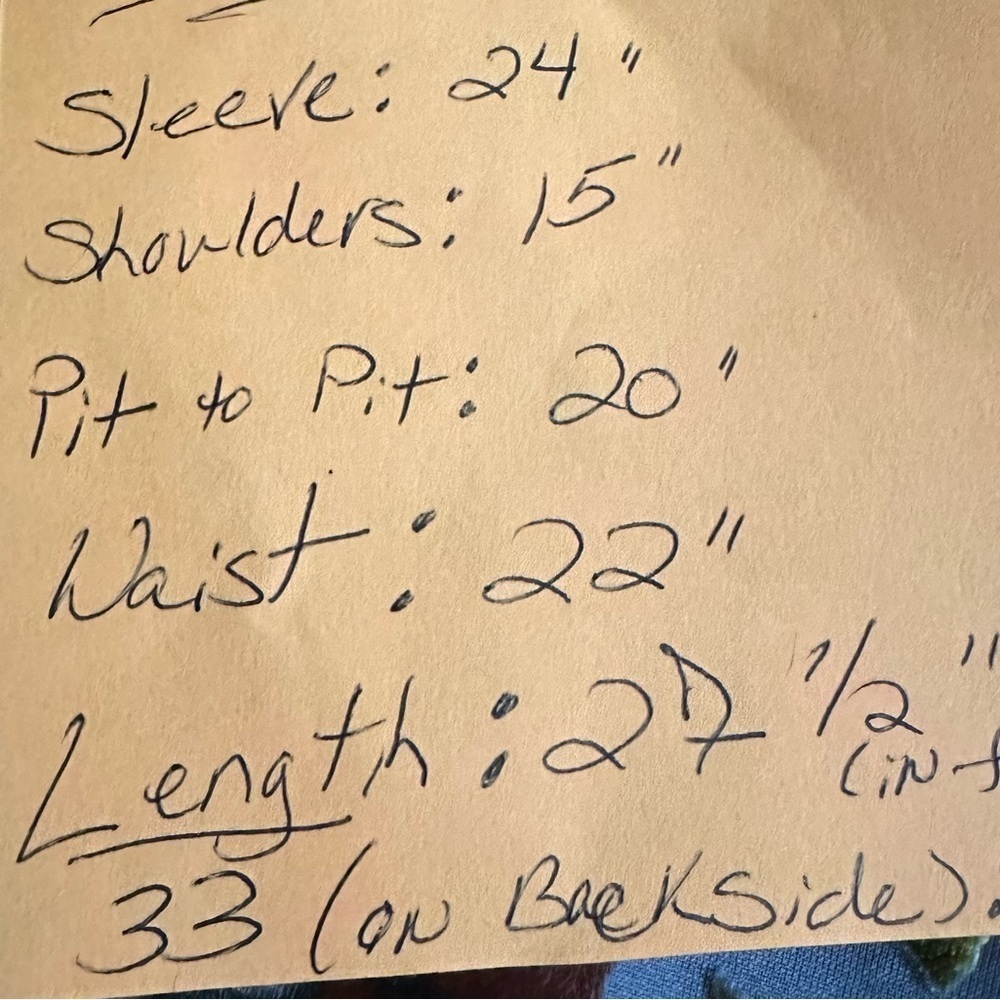 Sleeve: 24"
Shoulders: 15"
Pit to Pit: 20"
Waist: 22"
Length: 27 1/2"
(in f
33 (on Backside).